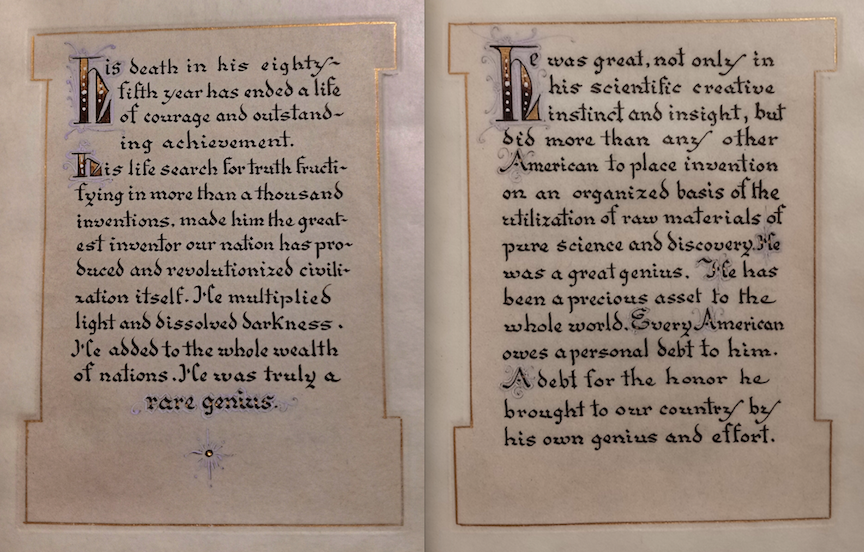 His death in his eighty-
fifth year has ended a life
of courage and outstand-
ing achievement.
His life search for truth fructi-
fying in more than a thousand
inventions, made him the great-
est inventor our nation has pro-
duced and revolutionized civili-
zation itself. He multiplied
light and dissolved darkness.
He added to the whole wealth
of nations. He was truly a
rare genius.
He was great, not only in
his scientific creative
instinct and insight, but
did more than any other
American to place invention
on an organized basis of the
utilization of raw materials of
pure science and discovery. He
was a great genius. He has
been a precious asset to the
whole world. Every American
owes a personal debt to him.
A debt for the honor he
brought to our country by
his own genius and effort.